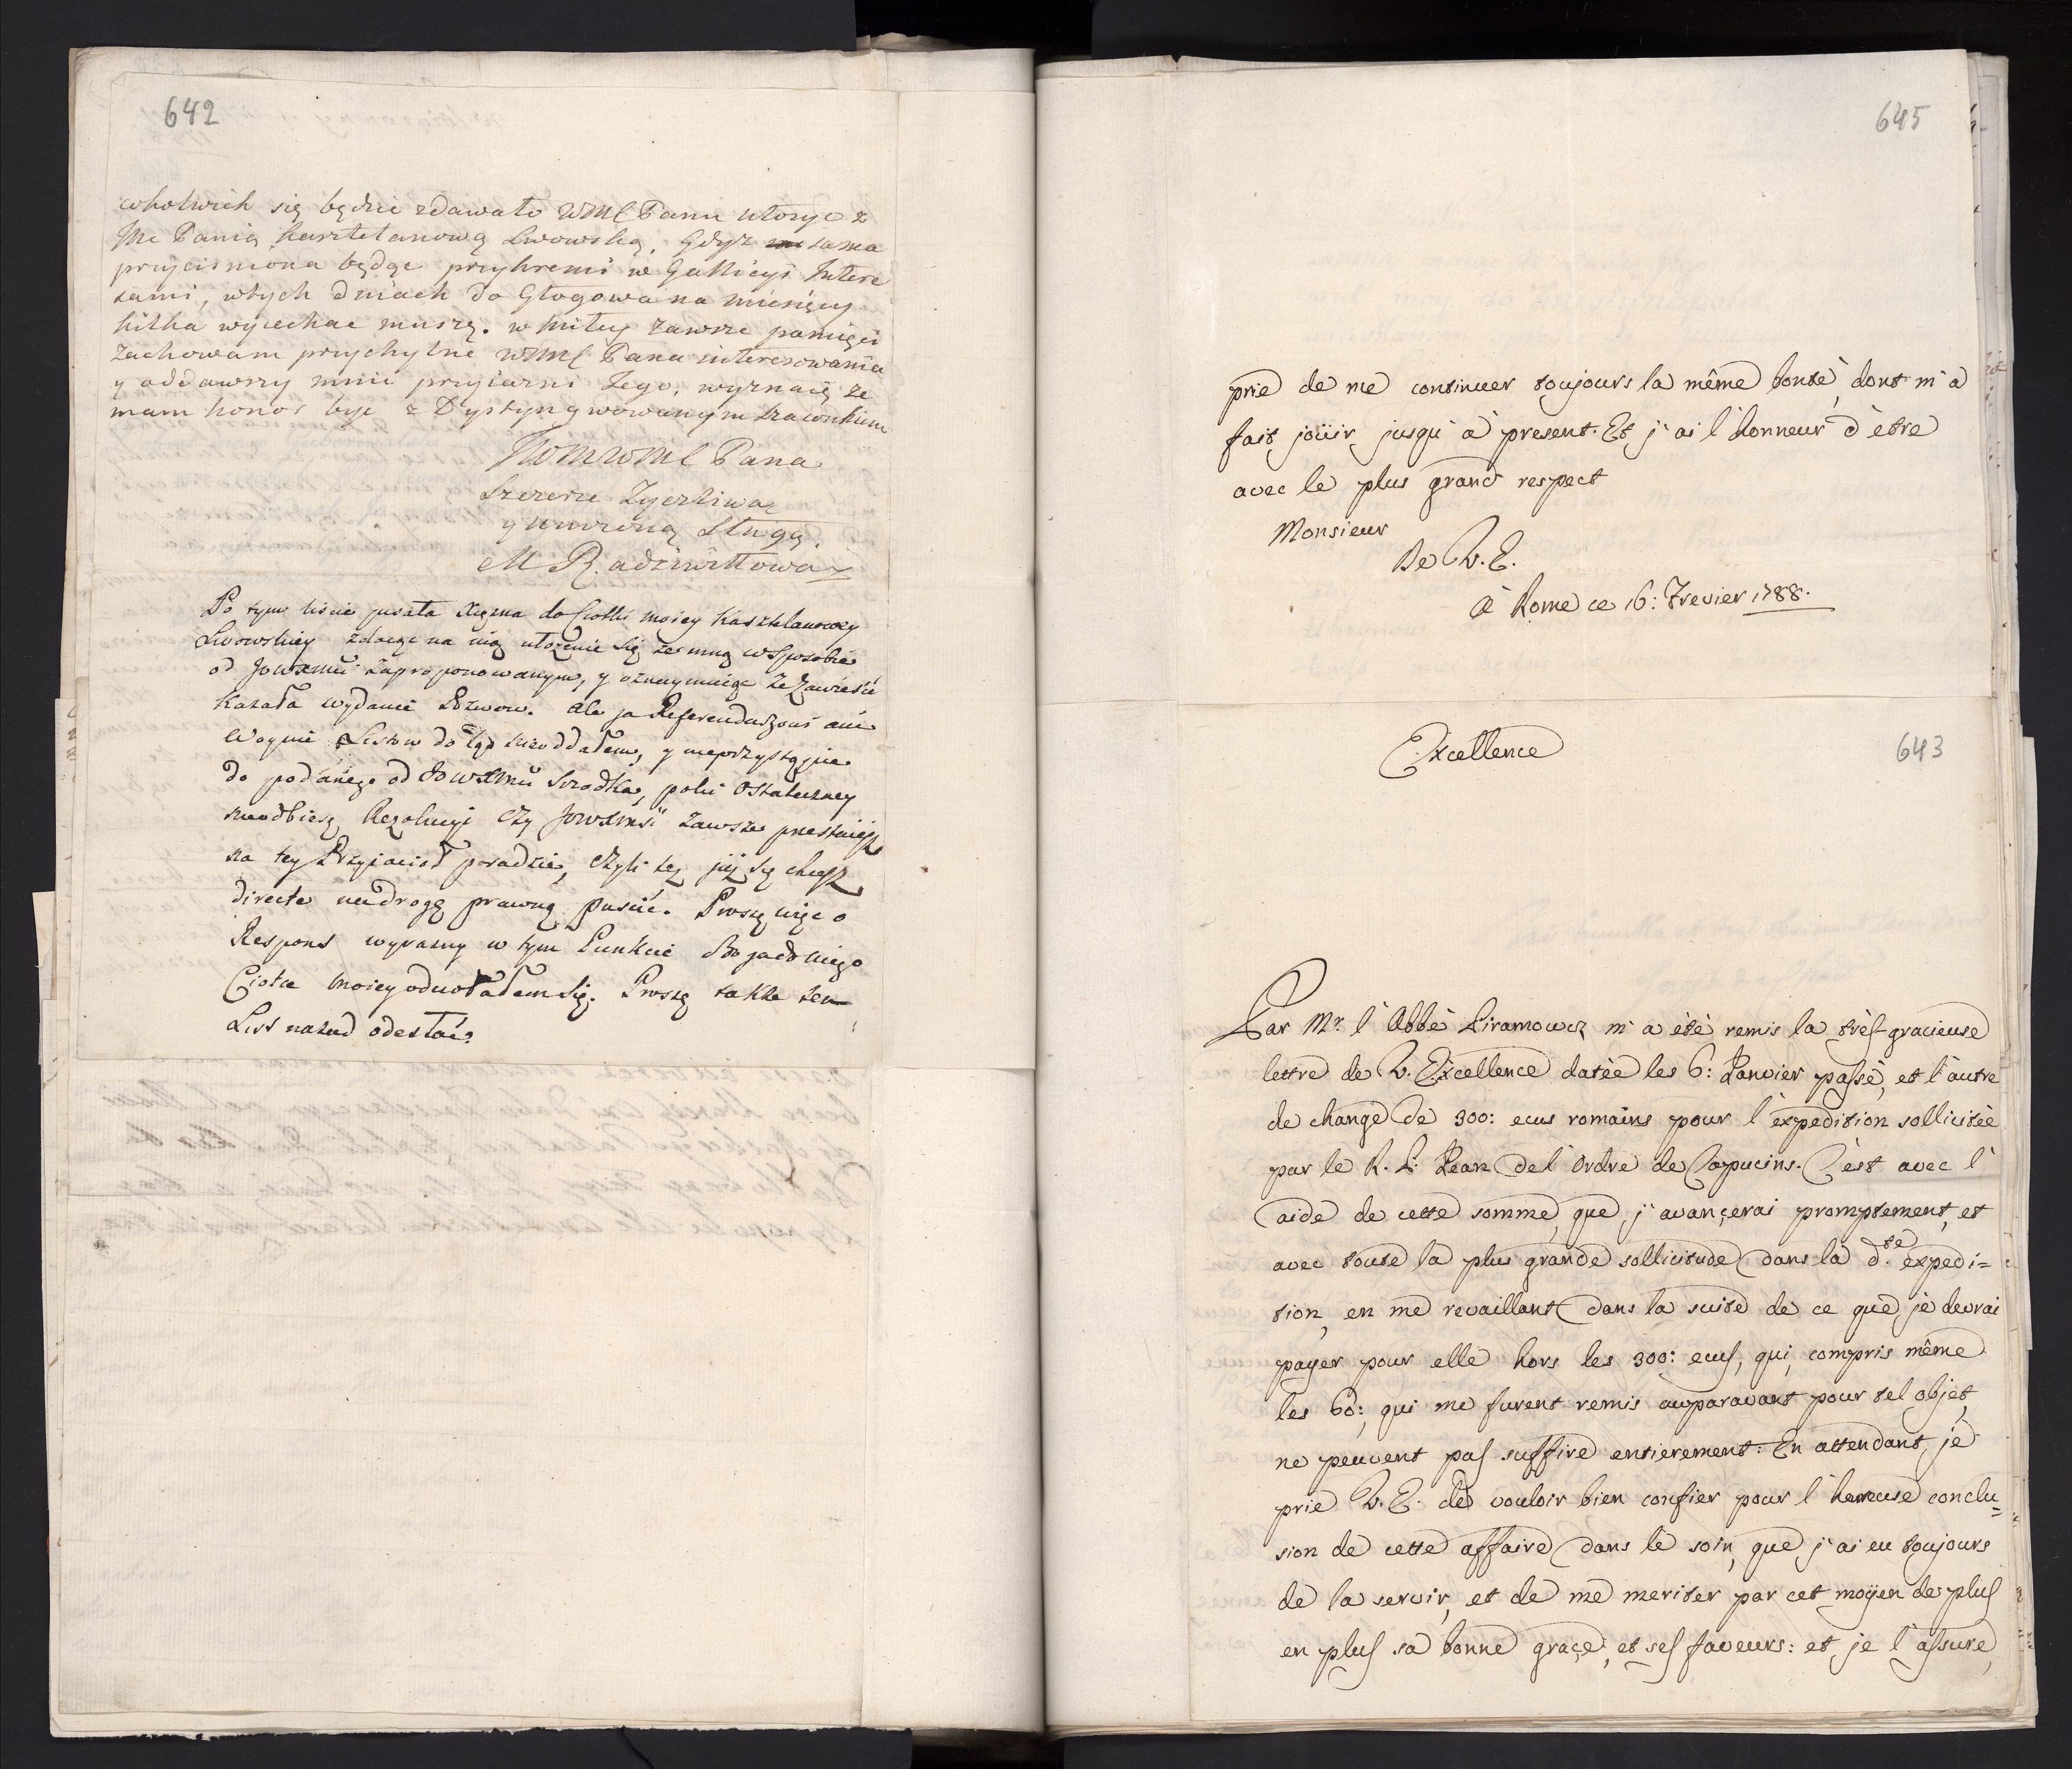 642
cokolwiek się będzie zdawało WMć Panu ułozyc z
JMc Panią Kasztelanową Lwowską. Gdyz sama
przycisniona będąc przykremi w Gallicyi Intere
sami, wtych dniach do Głogowa na miesięcy
kilka wyiechac muszę. w miłey zawsze pamięci
zachowam przychylne WMć Pana interesowania
y oddawszy mnie przyiazni Jego, wyznaię ze
mam honor byc z Dystyngwowanym szacunkiem
WMć Pana
szczerze Zyczliwą
y unizoną Sługą.
M Radziwiłłowa
Po tym liscie pisała Xięzna do Ciotki moiey Kasztelanowey
Lwowskiey zdaiąc na nią ułozenie się ze mną w Sposobie
od JoWXMci zaproponowanym, y oznaymuiąc ze zawiesić
kazała wydanie Pozwow. Ale ja Referendarzowi ani
Woynie Listow do tąd nieoddałem, y nieprzystąpie
do podanego od JoWXMci srzodka, poki ostateczney
nieodbiorę Rezolucyi czy JoWXMć zawsze przestaiesz
na tey Przyiacioł poradzie, czyli tez juz się chcesz
directe nadrogę prawną puscić. Proszę więc o
Respons wyrazny w tym Punkcie bo ja do niego
Ciotce moiey odwołałem się. Proszę takze ten
List nazad odesłać.
645
prie de me continuer toujours la même bonté, dont m'a
fait joüir jusqu'à present. Et j'ai l'honneur d'être
avec le plus grand respect
Monsieur
De V. E.
à Rome ce 16: Frevier 1788.
Excellence
643
Par Mr. l'Abbé Piramowcz m'a été remis la très gracieuse
lettre de V. Excellence datée les 6: Janvier passé, et l'autre
de change de 300: ecus romains pour l'expedition sollicitée
par le R. P. Jean de l'Ordre de Capucins. C'est avec l'
aide de cette somme, que j'avançerai promptement, et
avec toute la plus grande sollicitude dans la d.te expedi=
tion, en me revaillant dans la suite de ce que je devrai
payer pour elle hors les 300: ecus, qui, compris même
les 60:, qui me furent remis auparavant pour tel objet,
ne peuvent pas suffire entierement: En attendant, je
prie V. E. de vouloir bien confier pour l'hereuse conclu=
sion de cette affaire dans le soin, que j'ai eu toujours
de la servir, et de me meriter par cet moyen de plus
en plus sa bonne graçe, et ses faveurs: et je l'assure,